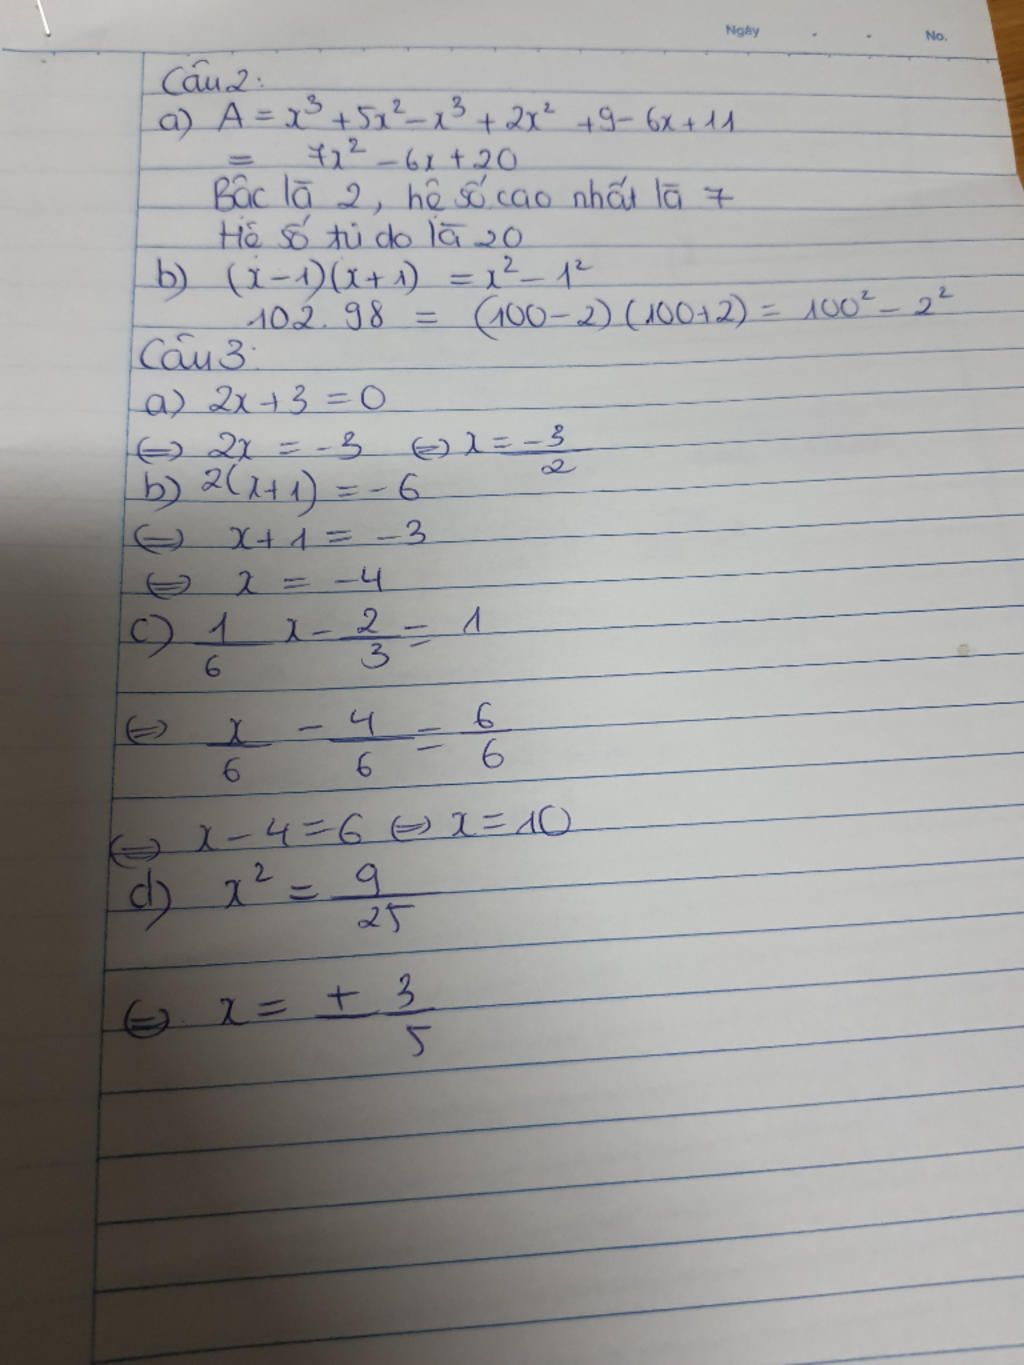 Ngày . . No.
Câu 2:
a) A = x³ + 5x² - x³ + 2x² + 9 - 6x + 11
= 7x² - 6x + 20
Bậc là 2, hệ số cao nhất là 7
Hệ số tự do là 20
b) (x - 1)(x + 1) = x² - 1²
102.98 = (100 - 2)(100 + 2) = 100² - 2²
Câu 3:
a) 2x + 3 = 0
⇔ 2x = -3 ⇔ x = -3/2
b) 2(x + 1) = -6
⇔ x + 1 = -3
⇔ x = -4
c) 1/6 x - 2/3 = 1
⇔ x/6 - 4/6 = 6/6
⇔ x - 4 = 6 ⇔ x = 10
d) x² = 9/25
⇔ x = ± 3/5